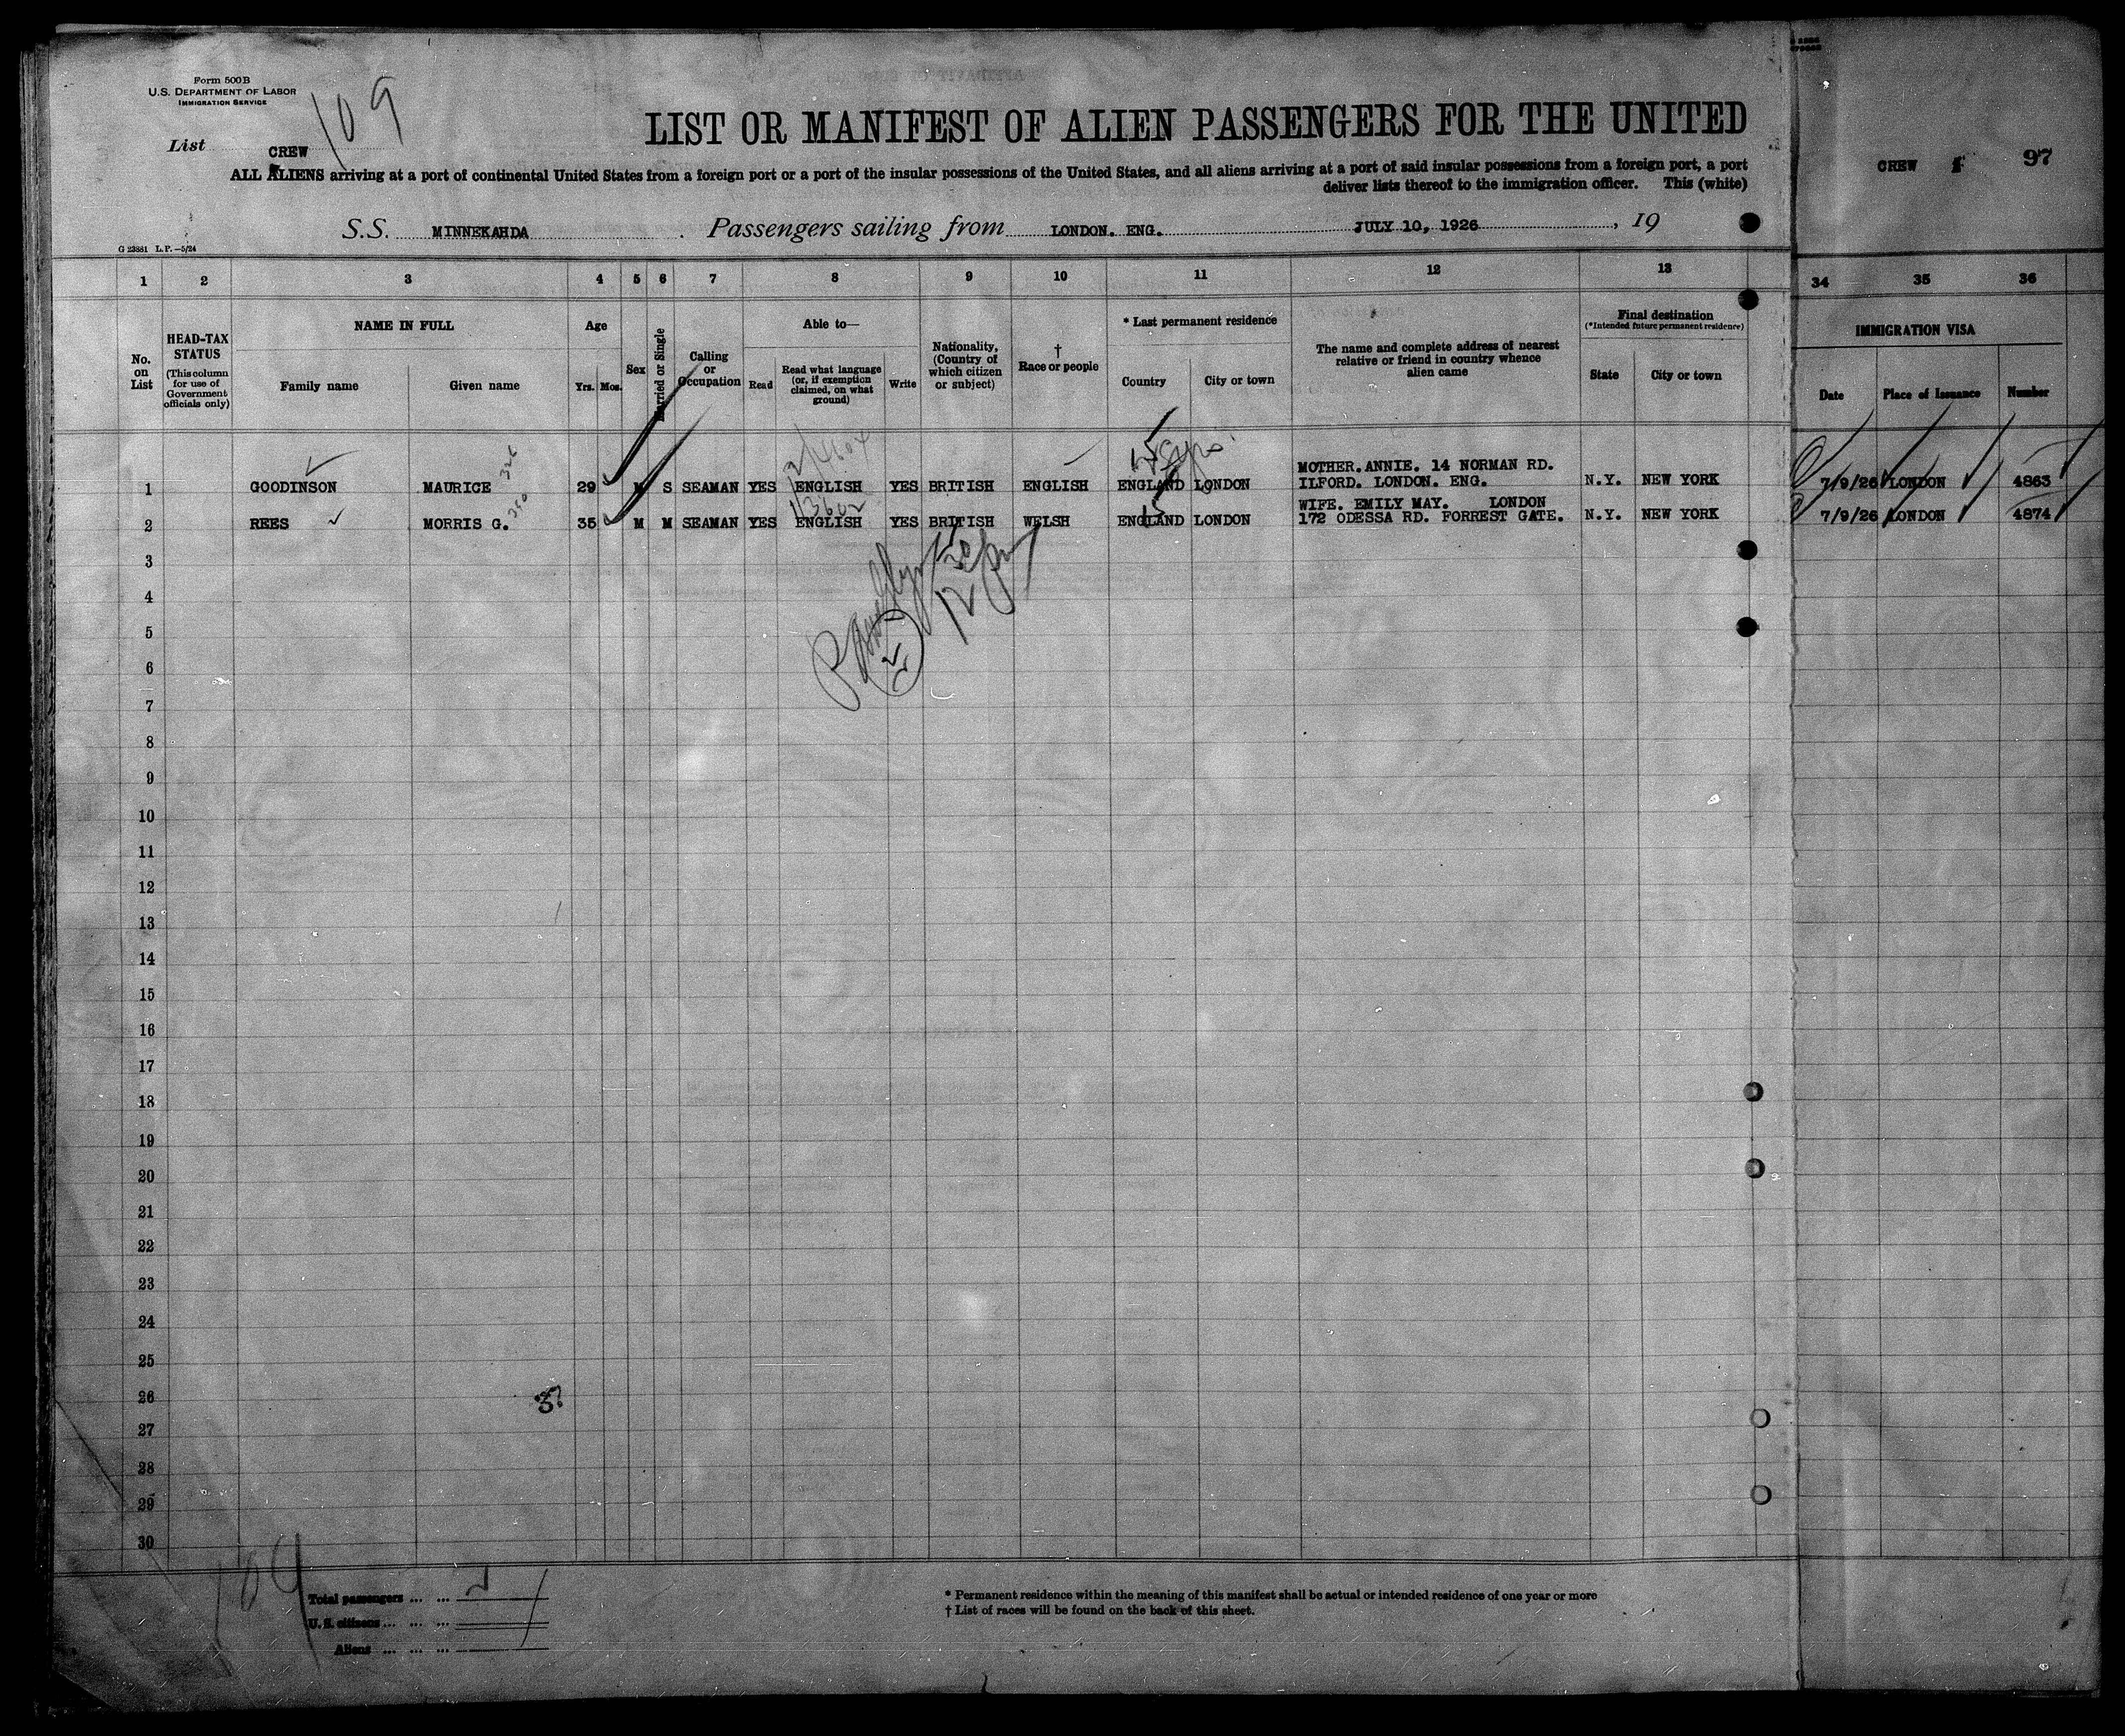 Form 500B
U.S. DEPARTMENT OF LABOR
IMMIGRATION SERVICE
109
List CREW
LIST OR MANIFEST OF ALIEN PASSENGERS FOR THE UNITED
ALL ALIENS arriving at a port of continental United States from a foreign port or a port of the insular possessions of the United States, and all aliens arriving at a port of said insular possessions from a foreign port, a port
deliver lists thereof to the immigration officer. This (white)
CREW 97
S.S. MINNEKAHDA . Passengers sailing from LONDON. ENG. JULY 10, 1926 , 19
G 23881 L.P.—5/24
1 2 3 4 5 6 7 8 9 10 11 12 13 34 35 36
No. on List
HEAD-TAX STATUS
(This column for use of Government officials only)
NAME IN FULL
Family name Given name
Age
Yrs. Mos.
Sex
Married or Single
Calling or Occupation
Able to—
Read
Read what language (or, if exemption claimed, on what ground)
Write
Nationality, (Country of which citizen or subject)
†
Race or people
* Last permanent residence
Country City or town
The name and complete address of nearest relative or friend in country whence alien came
Final destination
(*Intended future permanent residence)
State City or town
IMMIGRATION VISA
Date Place of Issuance Number
MOTHER. ANNIE. 14 NORMAN RD.
1 GOODINSON MAURICE 29 M S SEAMAN YES ENGLISH YES BRITISH ENGLISH ENGLAND LONDON ILFORD. LONDON. ENG. N.Y. NEW YORK 7/9/26 LONDON 4863
WIFE. EMILY MAY. LONDON
2 REES MORRIS G. 35 M M SEAMAN YES ENGLISH YES BRITISH WELSH ENGLAND LONDON 172 ODESSA RD. FORREST GATE. N.Y. NEW YORK 7/9/26 LONDON 4874
3
4
5
6
7
8
9
10
11
12
13
14
15
16
17
18
19
20
21
22
23
24
25
26
27
28
29
30
109
Total passengers ... ... 2
U.S. citizens ... ... ...
Aliens ... ... ...
* Permanent residence within the meaning of this manifest shall be actual or intended residence of one year or more
† List of races will be found on the back of this sheet.